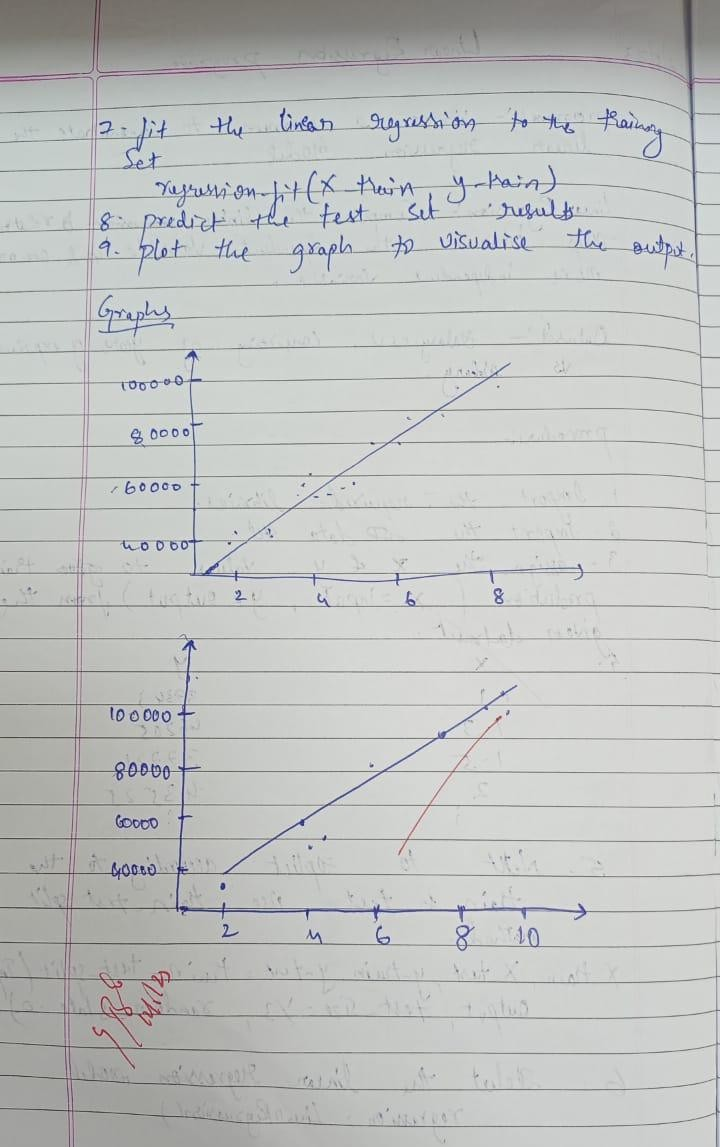 7. fit the linear regression to the training
Set
regression.fit(X_train, y_train)
8. predict the test set results
9. plot the graph to visualise the output.
Graphs
100000
80000
60000
40000
2 4 6 8
100000
80000
60000
40000
2 4 6 8 10